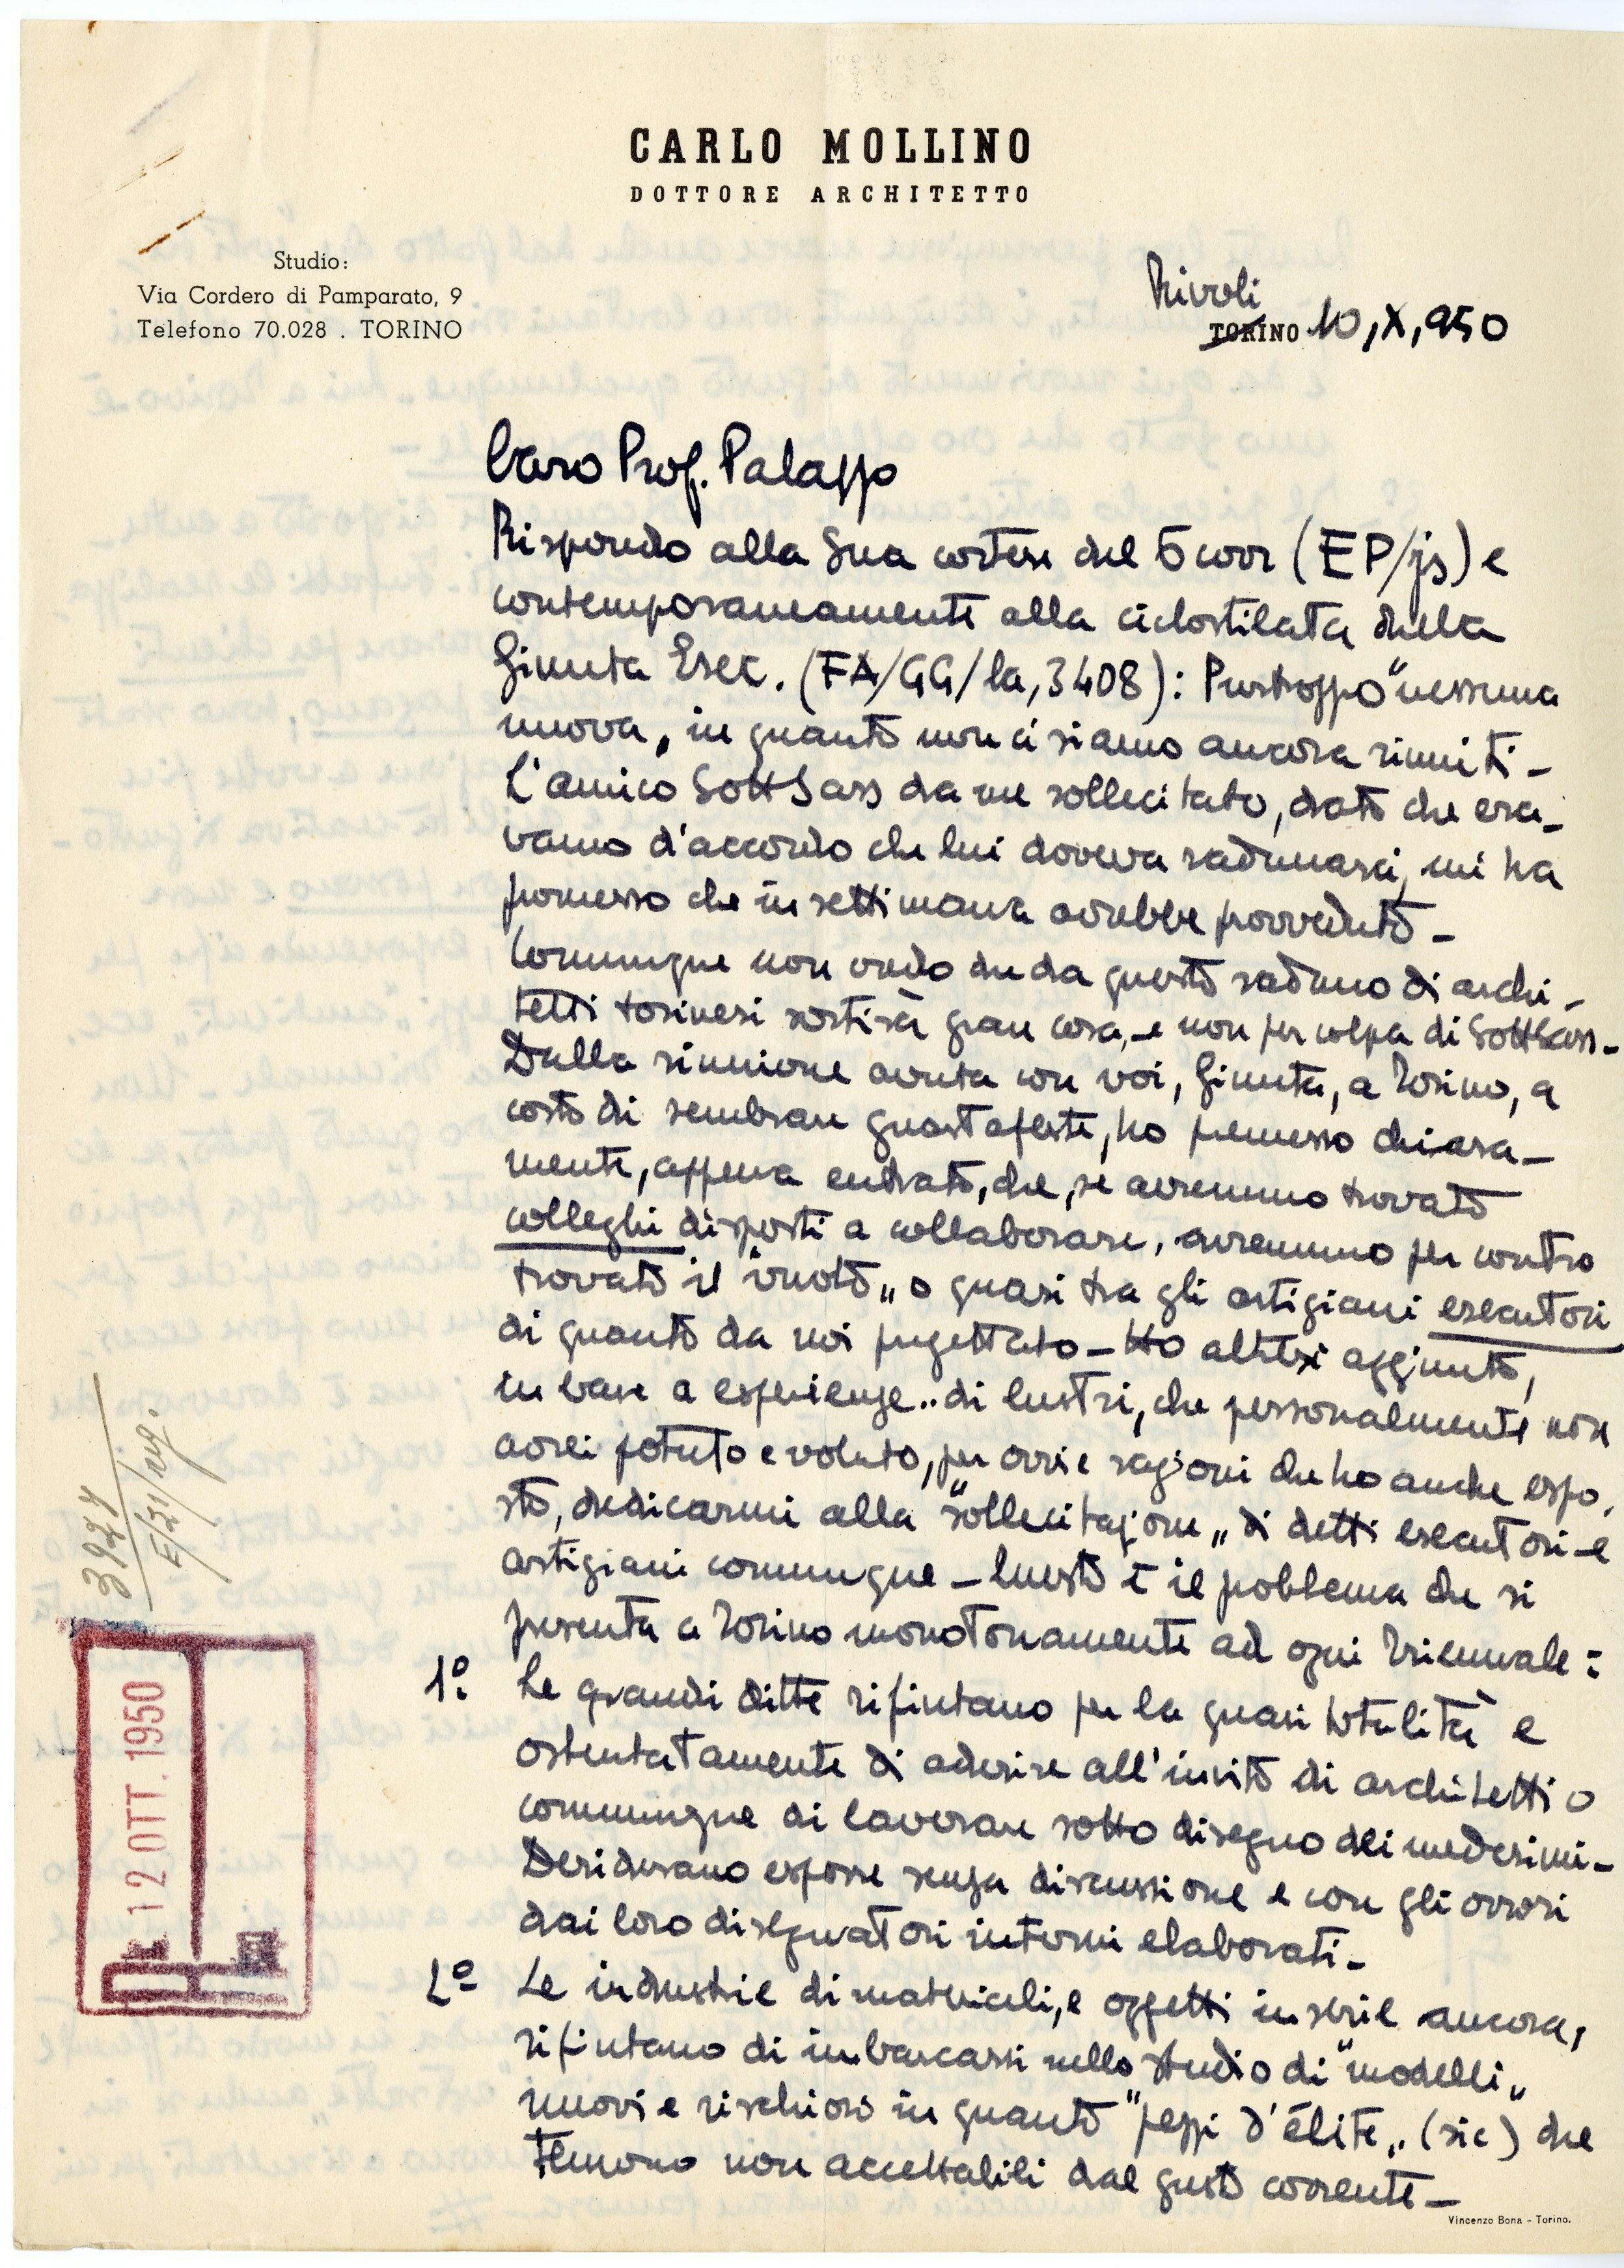 CARLO MOLLINO
DOTTORE ARCHITETTO
Studio:
Via Cordero di Pamparato, 9
Telefono 70.028 . TORINO
Rivoli
TORINO 10,X,950
Caro Prof. Palazzo
Rispondo alla Sua cortese del 5 corr (EP/js) e
contemporaneamente alla ciclostilata della
Giunta Esec. (FA/GG/la,3408): Purtroppo "nessuna
nuova„ in quanto non ci siamo ancora riuniti -
L'amico SottSass da me sollecitato, dato che era-
vamo d'accordo che lui doveva radunarci, mi ha
promesso che in settimana avrebbe provveduto -
Comunque non vedo che da questo raduno di archi-
tetti torinesi sortirà gran cosa, - e non per colpa di SottSass -
Dalla riunione avuta con voi, Giunta, a Torino, a
costo di sembrare guastafeste, ho premesso chiara-
mente, appena entrato, che, se avremmo trovato
colleghi disposti a collaborare, avremmo per contro
trovato il "vuoto„ o quasi tra gli artigiani esecutori
di quanto da noi progettato - Ho altresì aggiunto,
in base a esperienze.. di lustri, che personalmente non
avrei potuto e voluto, per ovvie ragioni che ho anche espo,
sto, dedicarmi alla "sollecitazione„ di detti esecutori - e
artigiani comunque - Questo è il problema che si
presenta a Torino monotonamente ad ogni Triennale:
1º: Le grandi ditte rifiutano per la quasi totalità e
ostentatamente di aderire all'invito di architetti o
comunque di lavorare sotto disegno dei medesimi -
Desiderano esporre senza discussione e con gli orrori
dai loro disegnatori interni elaborati -
2º Le industrie di materiali, e oggetti in serie ancora,
rifiutano di imbarcarsi nello studio di "modelli„
nuovi e rischiosi in quanto "pezzi d'élite„ (sic) che
temono non accettabili dal gusto corrente -
3927
E/21/
12 OTT. 1950
Vincenzo Bona - Torino.